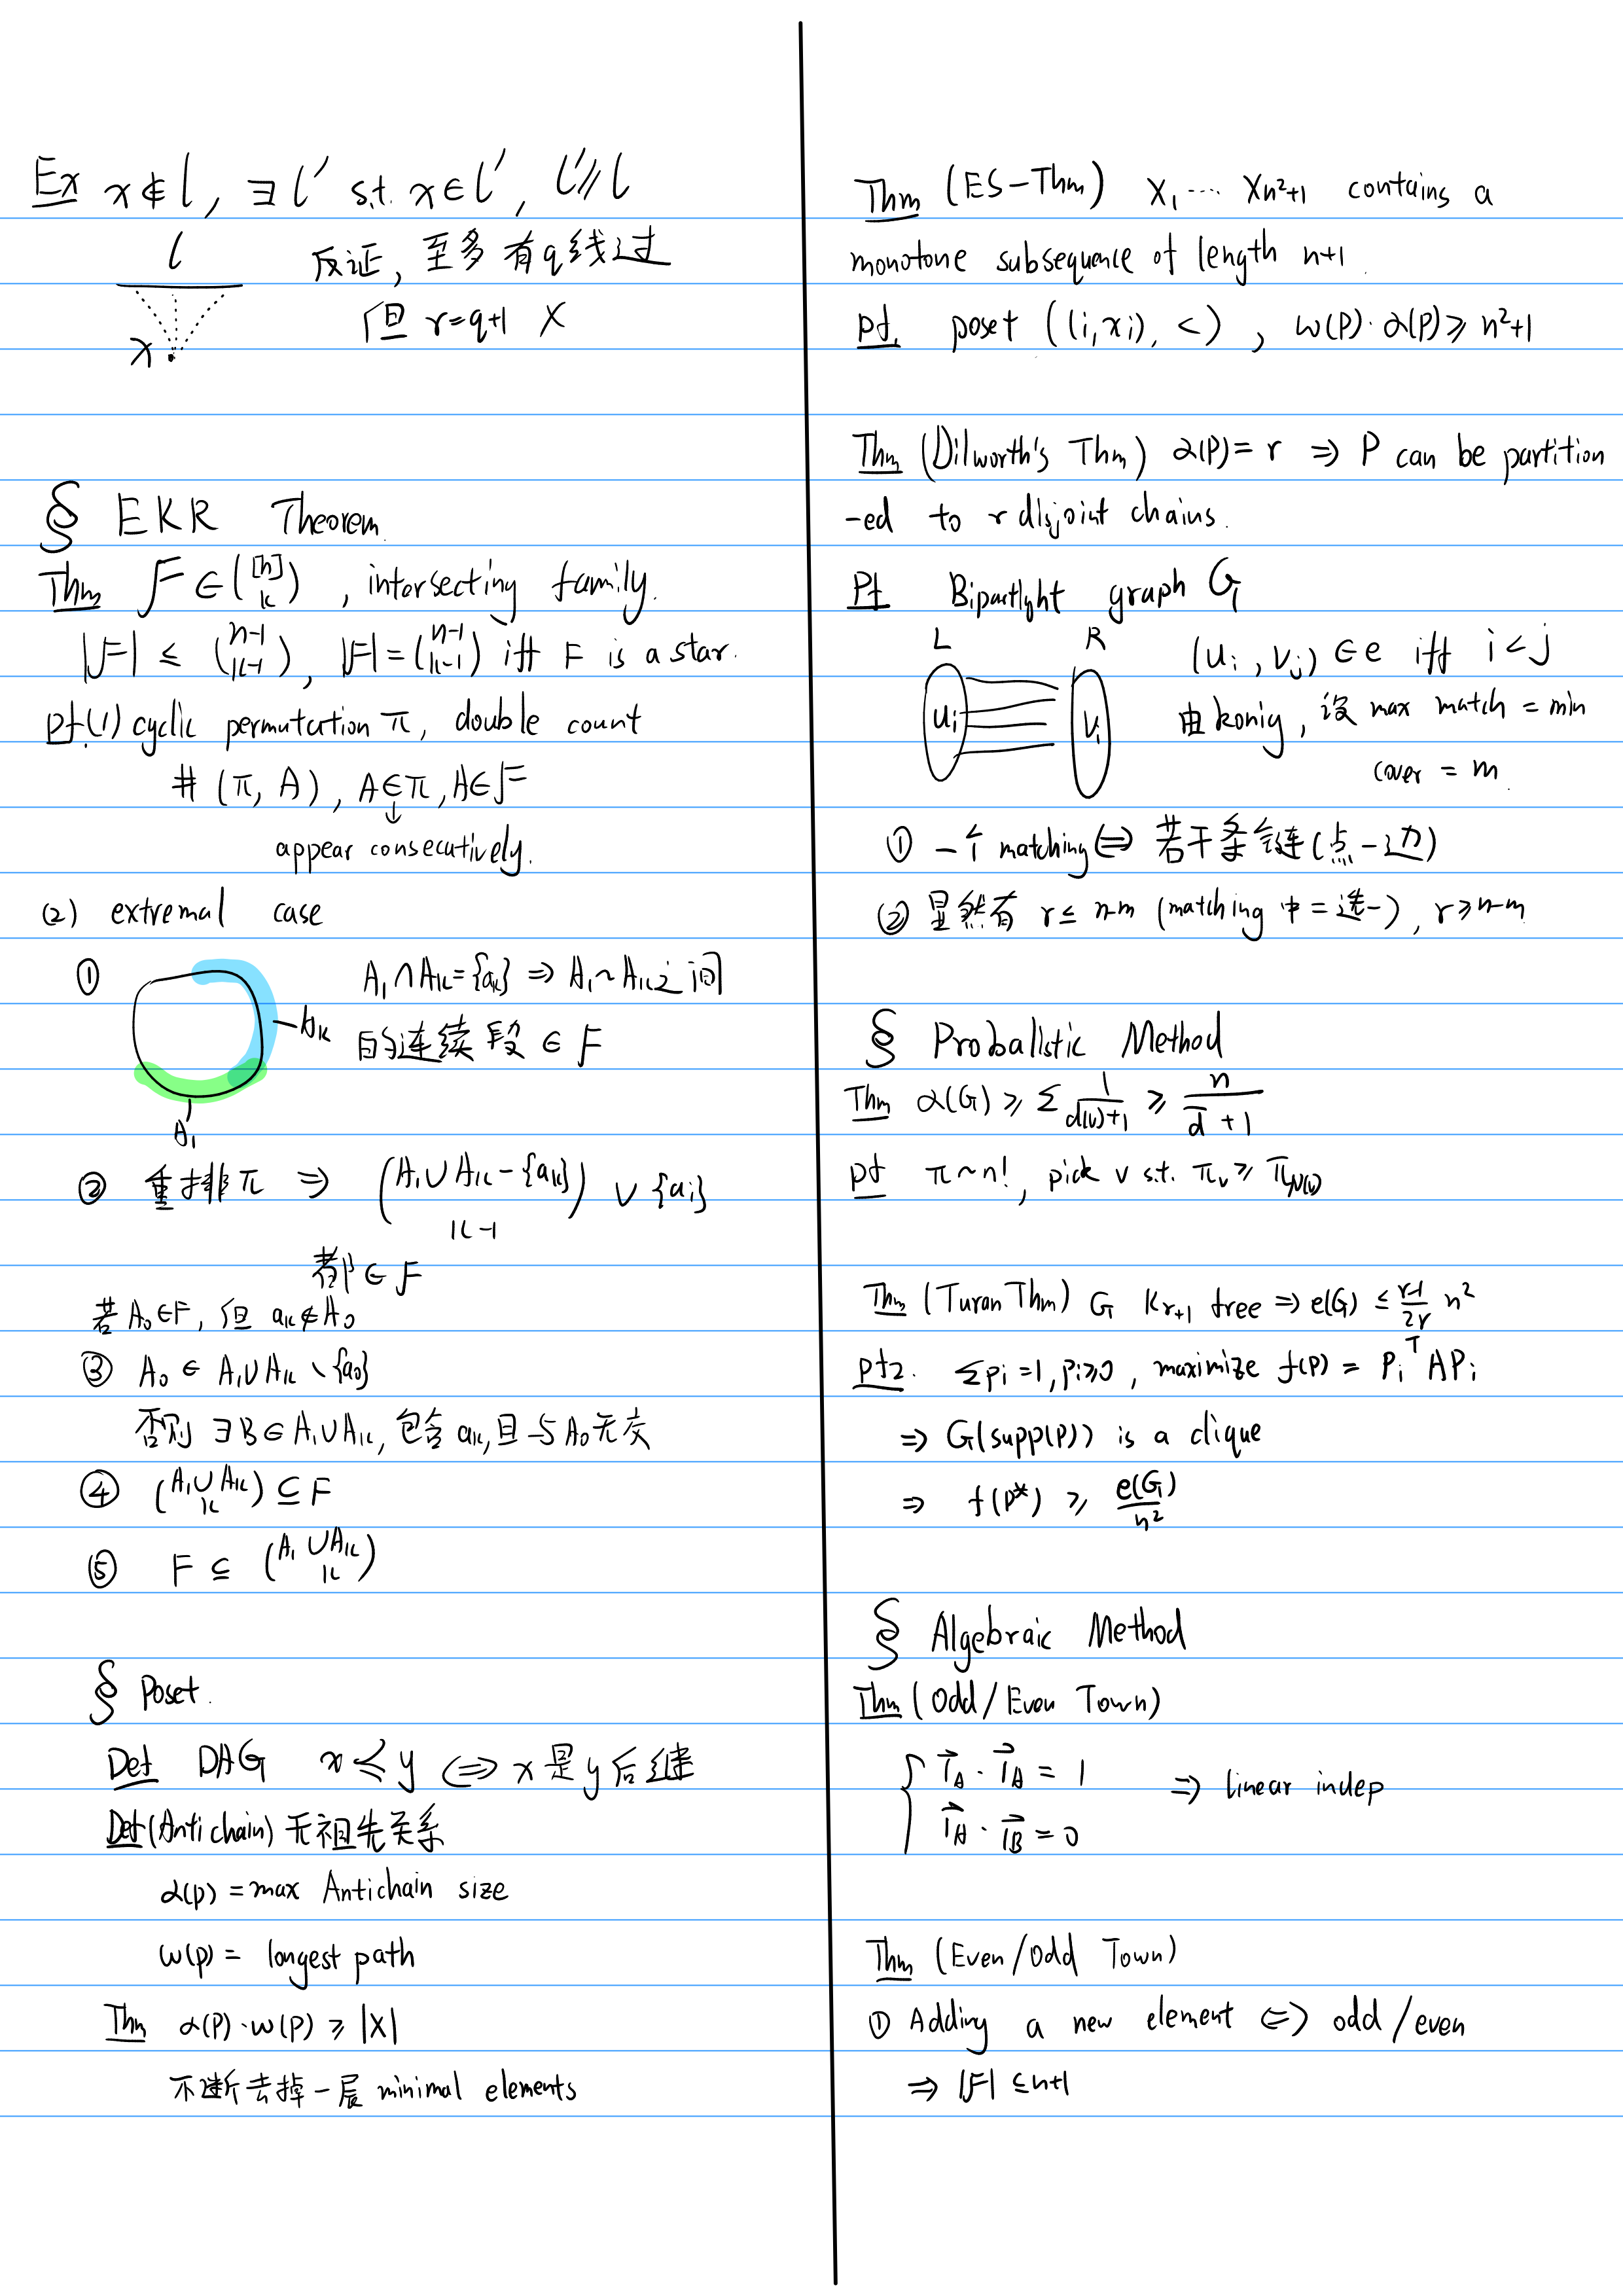 Ex x∉l, ∃l' s.t. x∈l', l'∥l
l
反证, 至多有q线过
但 r=q+1 ×
x
§ EKR Theorem.
Thm F ∈ ([n] k), intersecting family.
|F| ≤ (n-1 k-1), |F| = (n-1 k-1) iff F is a star.
pf.(1) cyclic permutation π, double count
# (π, A), A∈π, A∈F
↓
appear consecutively.
(2) extremal case
① A₁∩Aₖ={aₖ} ⇒ A₁~Aₖ之间
Aₖ
的连续段 ∈ F
A₁
② 重排π ⇒ (A₁∪Aₖ-{aₖ} k-1) ∪ {aᵢ}
都∈F
若A₀∈F, 但 aₖ∉A₀
③ A₀ ∈ A₁∪Aₖ\{a₀}
否则 ∃B∈A₁∪Aₖ, 包含aₖ,且与A₀无交
④ (A₁∪Aₖ k) ⊆ F
⑤ F ⊆ (A₁∪Aₖ k)
§ Poset.
Def DAG x≼y ⇔ x是y后继
Def(Antichain) 无祖先关系
α(p) = max Antichain size
w(p) = longest path
Thm α(P)·w(P) ≥ |X|
不断去掉一层 minimal elements
Thm (ES-Thm) X₁ ... Xn²+1 contains a
monotone subsequence of length n+1.
pf. poset ((i,xi), <), w(P)·α(P) ≥ n²+1
Thm (Dilworth's Thm) α(P)= r ⇒ P can be partition
-ed to r disjoint chains.
Pf Bipartight graph G
L R
(uᵢ, vⱼ) ∈e iff i<j
uᵢ vᵢ
由konig, 设 max match = min
cover = m
① 一个matching ⇔ 若干条链(点-边)
② 显然有 r≤ n-m (matching 中二选一), r≥n-m
§ Probalistic Method
Thm α(G) ≥ Σ 1/(d(v)+1) ≥ n/(d̄+1)
pf π~n!, pick v s.t. πᵥ ≥ π_N(v)
Thm (Turan Thm) G K_{r+1} free ⇒ e(G) ≤ (r-1)/2r n²
pf2. Σpi=1, pi≥0, maximize f(p) = Pᵢᵀ A Pᵢ
⇒ G(supp(P)) is a clique
⇒ f(P*) ≥ e(G)/n²
§ Algebraic Method
Thm (Odd/Even Town)
{ 1⃗_A · 1⃗_A = 1 ⇒ linear indep
1⃗_A · 1⃗_B = 0
Thm (Even/Odd Town)
① Adding a new element ⇔ odd/even
⇒ |F| ≤ n+1